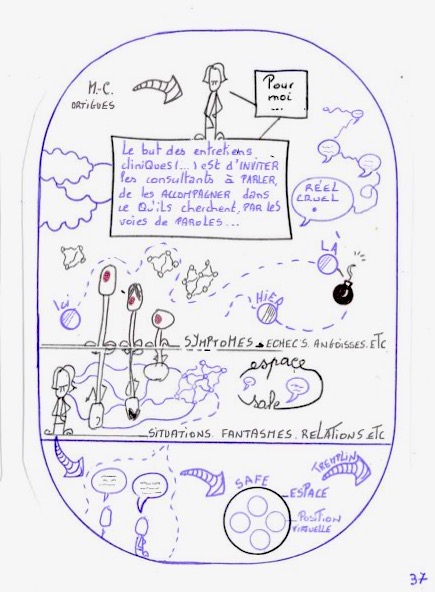 M.-C.
ORTIGUES
Pour
moi
...
Le but des entretiens
cliniques (...) est d'INVITER
les consultants à PARLER,
de les ACCOMPAGNER dans
ce qu'ils cherchent, PAR les
voies de PAROLES...
RÉEL
CRUEL
!
LÀ
ICI
HIER
SYMPTOMES. ECHECS. ANGOISSES. ETC
espace
safe
SITUATIONS. FANTASMES. RELATIONS. ETC
TREMPLIN
SAFE
ESPACE
POSITION
VIRTUELLE
37